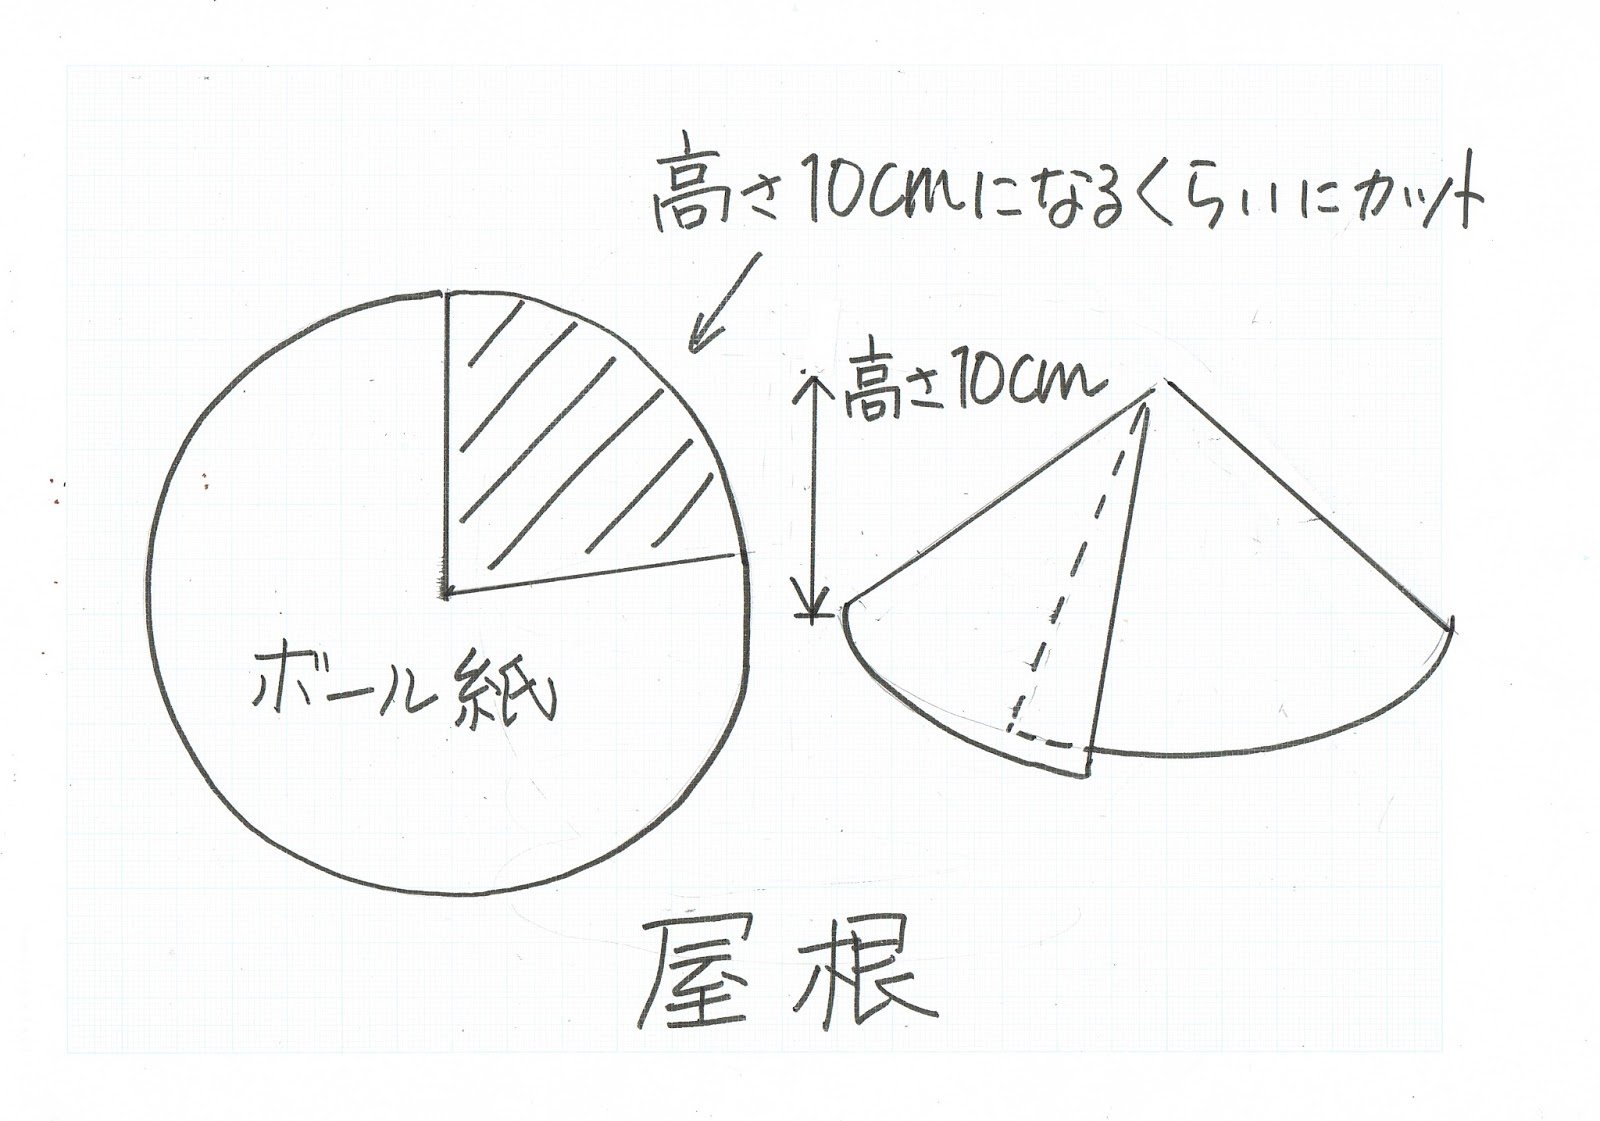 高さ10cmになるくらいにカット
高さ10cm
ボール紙
屋根